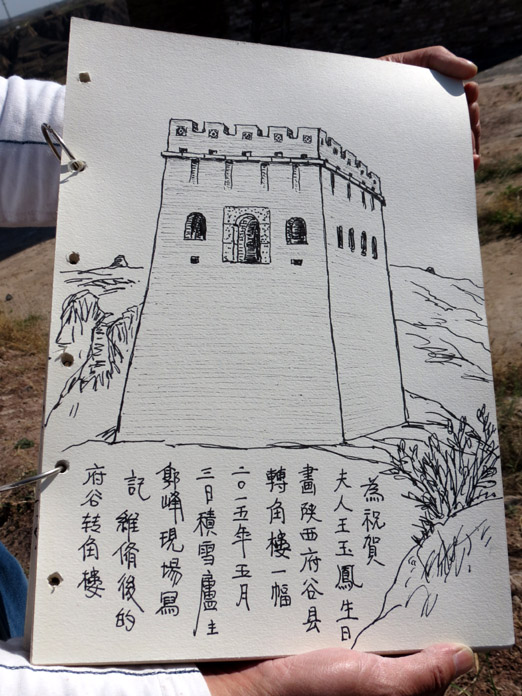 為祝賀
夫人王玉鳳生日
畫陕西府谷县
轉角樓一幅
二〇一五年五月
三日積雪廬主
鄭峰現場寫
記 維脩後的
府谷转角樓